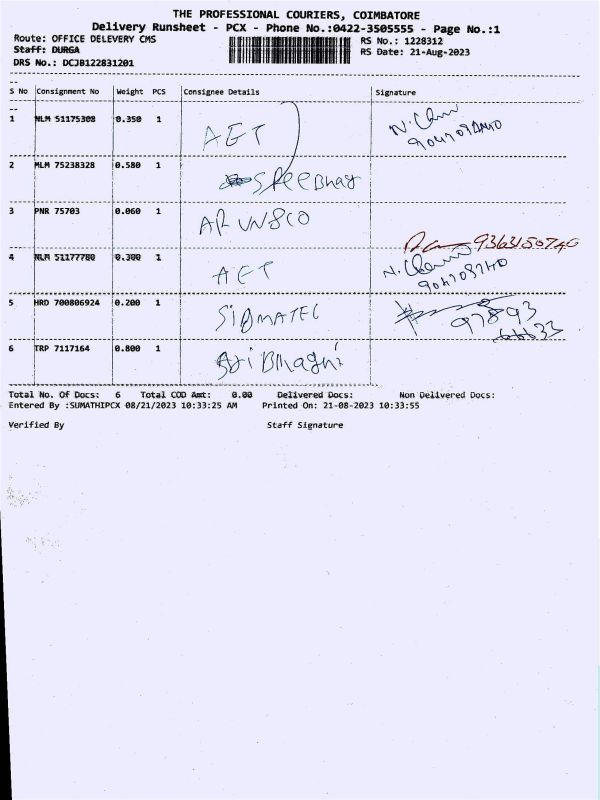 THE PROFESSIONAL COURIERS, COIMBATORE
Delivery Runsheet - PCX - Phone No.:0422-3505555 - Page No.:1
Route: OFFICE DELEVERY CMS RS No.: 1228312
Staff: DURGA RS Date: 21-Aug-2023
DRS No.: DCJB122831201
S No Consignment No Weight PCS Consignee Details Signature
1 NLM 51175308 0.350 1 AET N.
2 MLM 75238328 0.580 1
3 PNR 75703 0.060 1
9363150740
4 NLM 51177780 0.300 1 AET N.
5 HRD 700806924 0.200 1 SIGMATEC
97893
66633
6 TRP 7117164 0.800 1
Total No. Of Docs: 6 Total COD Amt: 0.00 Delivered Docs: Non Delivered Docs:
Entered By :SUMATHIPCX 08/21/2023 10:33:25 AM Printed On: 21-08-2023 10:33:55
Verified By Staff Signature